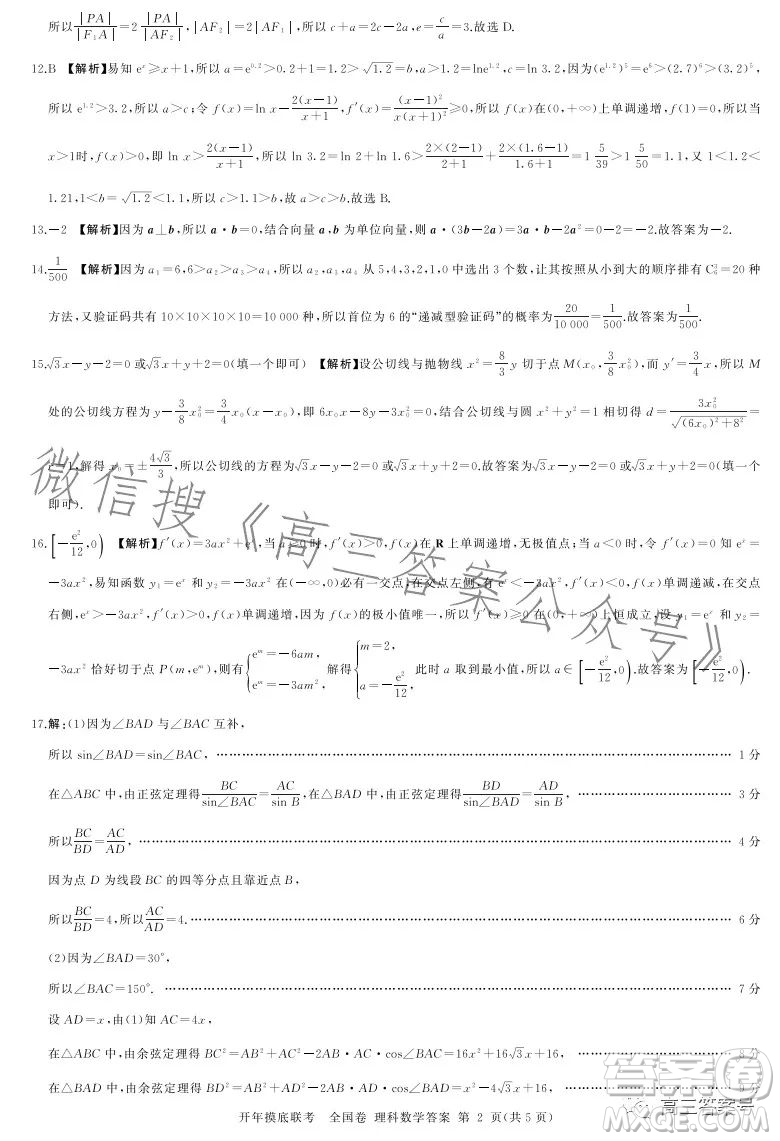 所以|PA|/|F₁A|=2|PA|/|AF₂|,|AF₂|=2|AF₁|,所以c+a=2c-2a,e=c/a=3.故选D.
12.B 【解析】易知eˣ≥x+1,所以a=e^0.2>0.2+1=1.2>√1.2=b,a>1.2=lne^1.2,c=ln 3.2,因为(e^1.2)⁵=e⁶>(2.7)⁶>(3.2)⁵,
所以e^1.2>3.2,所以a>c;令f(x)=ln x-2(x-1)/(x+1),f′(x)=(x-1)²/(x(x+1)²)≥0,所以f(x)在(0,+∞)上单调递增,f(1)=0,所以当
x>1时,f(x)>0,即ln x>2(x-1)/(x+1),所以ln 3.2=ln 2+ln 1.6>2×(2-1)/(2+1)+2×(1.6-1)/(1.6+1)=1 5/39>1 5/50=1.1,又1<1.2<
1.21,1<b=√1.2<1.1,所以c>1.1>b,故a>c>b.故选B.
13.-2 【解析】因为a⊥b,所以a·b=0,结合向量a,b为单位向量,则a·(3b-2a)=3a·b-2a²=0-2=-2.故答案为-2.
14.1/500 【解析】因为a₁=6,6>a₂>a₃>a₄,所以a₂,a₃,a₄从5,4,3,2,1,0中选出3个数,让其按照从小到大的顺序排有C₆³=20种
方法,又验证码共有10×10×10×10=10 000种,所以首位为6的“递减型验证码”的概率为20/10 000=1/500.故答案为1/500.
15.√3x-y-2=0或√3x+y+2=0(填一个即可) 【解析】设公切线与抛物线x²=8/3 y切于点M(x₀,3/8 x₀²),而y′=3/4 x,所以M
处的公切线方程为y-3/8 x₀²=3/4 x₀(x-x₀),即6x₀x-8y-3x₀²=0,结合公切线与圆x²+y²=1相切得d=3x₀²/√((6x₀)²+8²)
=1,解得x₀=±4√3/3,所以公切线的方程为√3x-y-2=0或√3x+y+2=0.故答案为√3x-y-2=0或√3x+y+2=0(填一个
即可).
16.[-e²/12,0) 【解析】f′(x)=3ax²+eˣ,当a≥0时,f′(x)>0,f(x)在R上单调递增,无极值点;当a<0时,令f′(x)=0知eˣ=
-3ax²,易知函数y₁=eˣ和y₂=-3ax²在(-∞,0)必有一交点,在交点左侧,有eˣ<-3ax²,f′(x)<0,f(x)单调递减,在交点
右侧,eˣ>-3ax²,f′(x)>0,f(x)单调递增,因为f(x)的极小值唯一,所以f′(x)≥0在(0,+∞)上恒成立,设y₁=eˣ和y₂=
-3ax²恰好切于点P(m,eᵐ),则有{eᵐ=-6am, eᵐ=-3am², 解得{m=2, a=-e²/12, 此时a取到最小值,所以a∈[-e²/12,0).故答案为[-e²/12,0).
17.解:(1)因为∠BAD与∠BAC互补,
所以sin∠BAD=sin∠BAC,…………1分
在△ABC中,由正弦定理得BC/sin∠BAC=AC/sin B,在△BAD中,由正弦定理得BD/sin∠BAD=AD/sin B,…………3分
所以BC/BD=AC/AD,…………4分
因为点D为线段BC的四等分点且靠近点B,
所以BC/BD=4,所以AC/AD=4.…………6分
(2)因为∠BAD=30°,
所以∠BAC=150°.…………7分
设AD=x,由(1)知AC=4x,
在△ABC中,由余弦定理得BC²=AB²+AC²-2AB·AC·cos∠BAC=16x²+16√3x+16,…………8分
在△BAD中,由余弦定理得BD²=AB²+AD²-2AB·AD·cos∠BAD=x²-4√3x+16,…………9分
开年摸底联考 全国卷 理科数学答案 第2页(共5页)
微信搜《高三答案公众号》
高三答案号